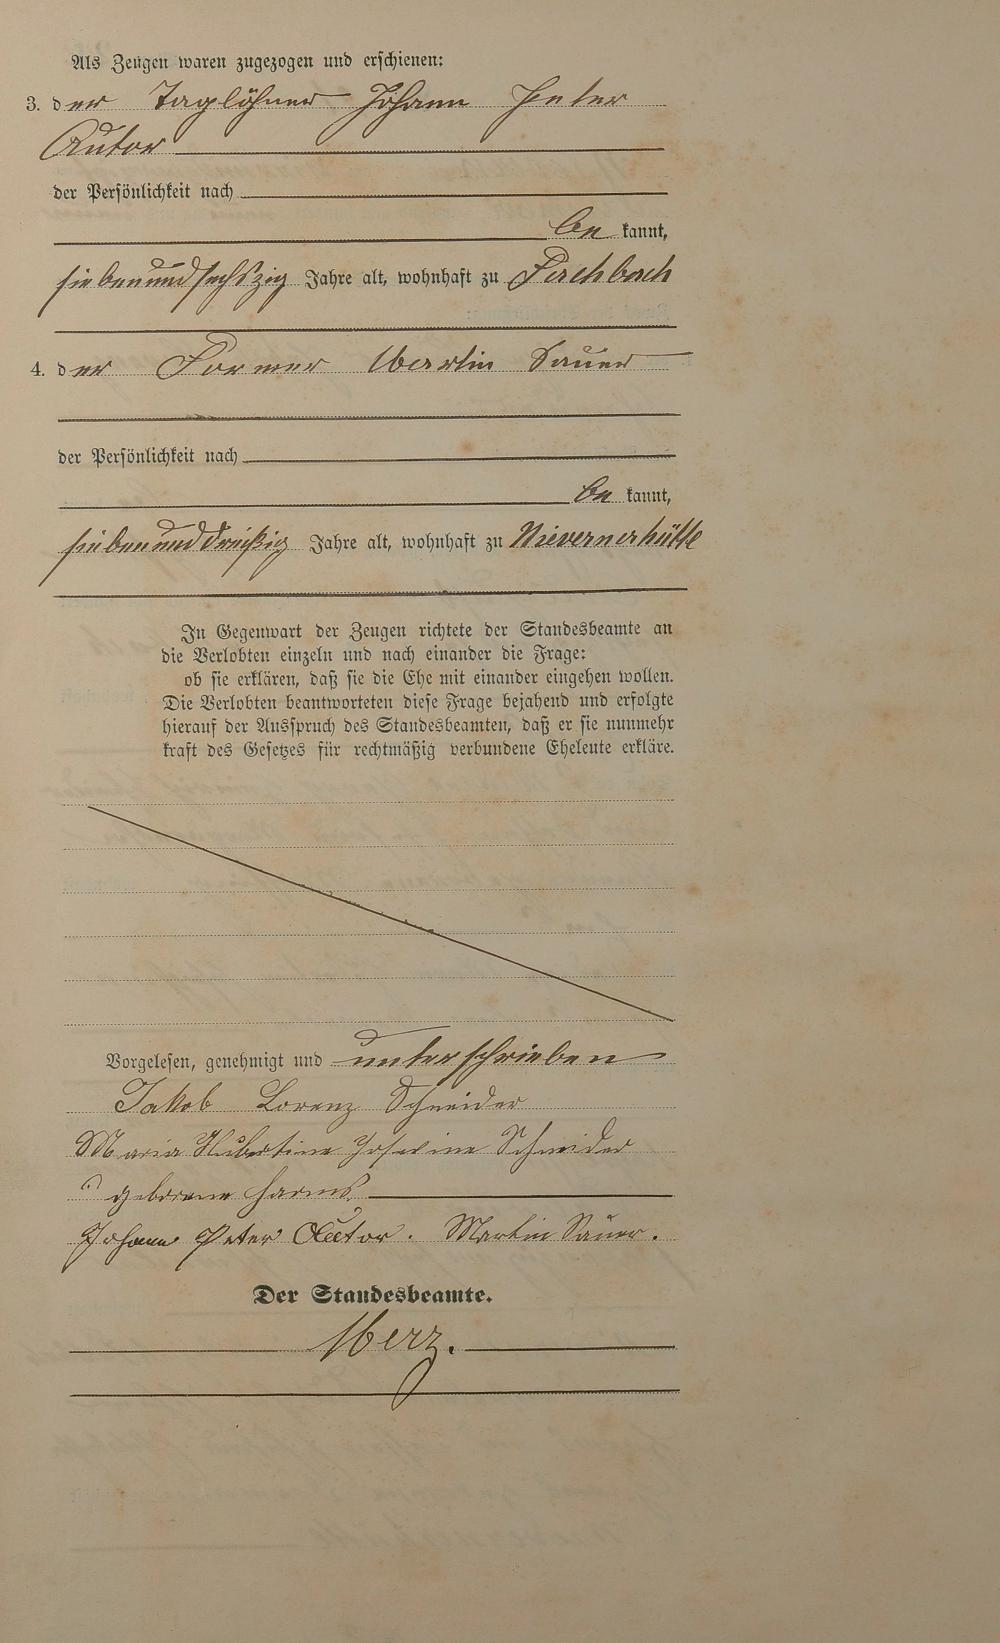 Als Zeugen waren zugezogen und erschienen:
3. der Taglöhner Johann Peter
Autor
der Persönlichkeit nach
be kannt,
siebenundsechszig Jahre alt, wohnhaft zu Fachbach
4. der Former Martin Sauer
der Persönlichkeit nach
be kannt,
siebenunddreißig Jahre alt, wohnhaft zu Nievernerhütte
In Gegenwart der Zeugen richtete der Standesbeamte an
die Verlobten einzeln und nach einander die Frage:
ob sie erklären, daß sie die Ehe mit einander eingehen wollen.
Die Verlobten beantworteten diese Frage bejahend und erfolgte
hierauf der Ausspruch des Standesbeamten, daß er sie nunmehr
kraft des Gesetzes für rechtmäßig verbundene Eheleute erkläre.
Vorgelesen, genehmigt und unterschrieben
Jakob Lorenz Schneider
Maria Hubertine Josefine Schneider
geborene Harms
Johann Peter Autor. Martin Sauer.
Der Standesbeamte.
Merz.